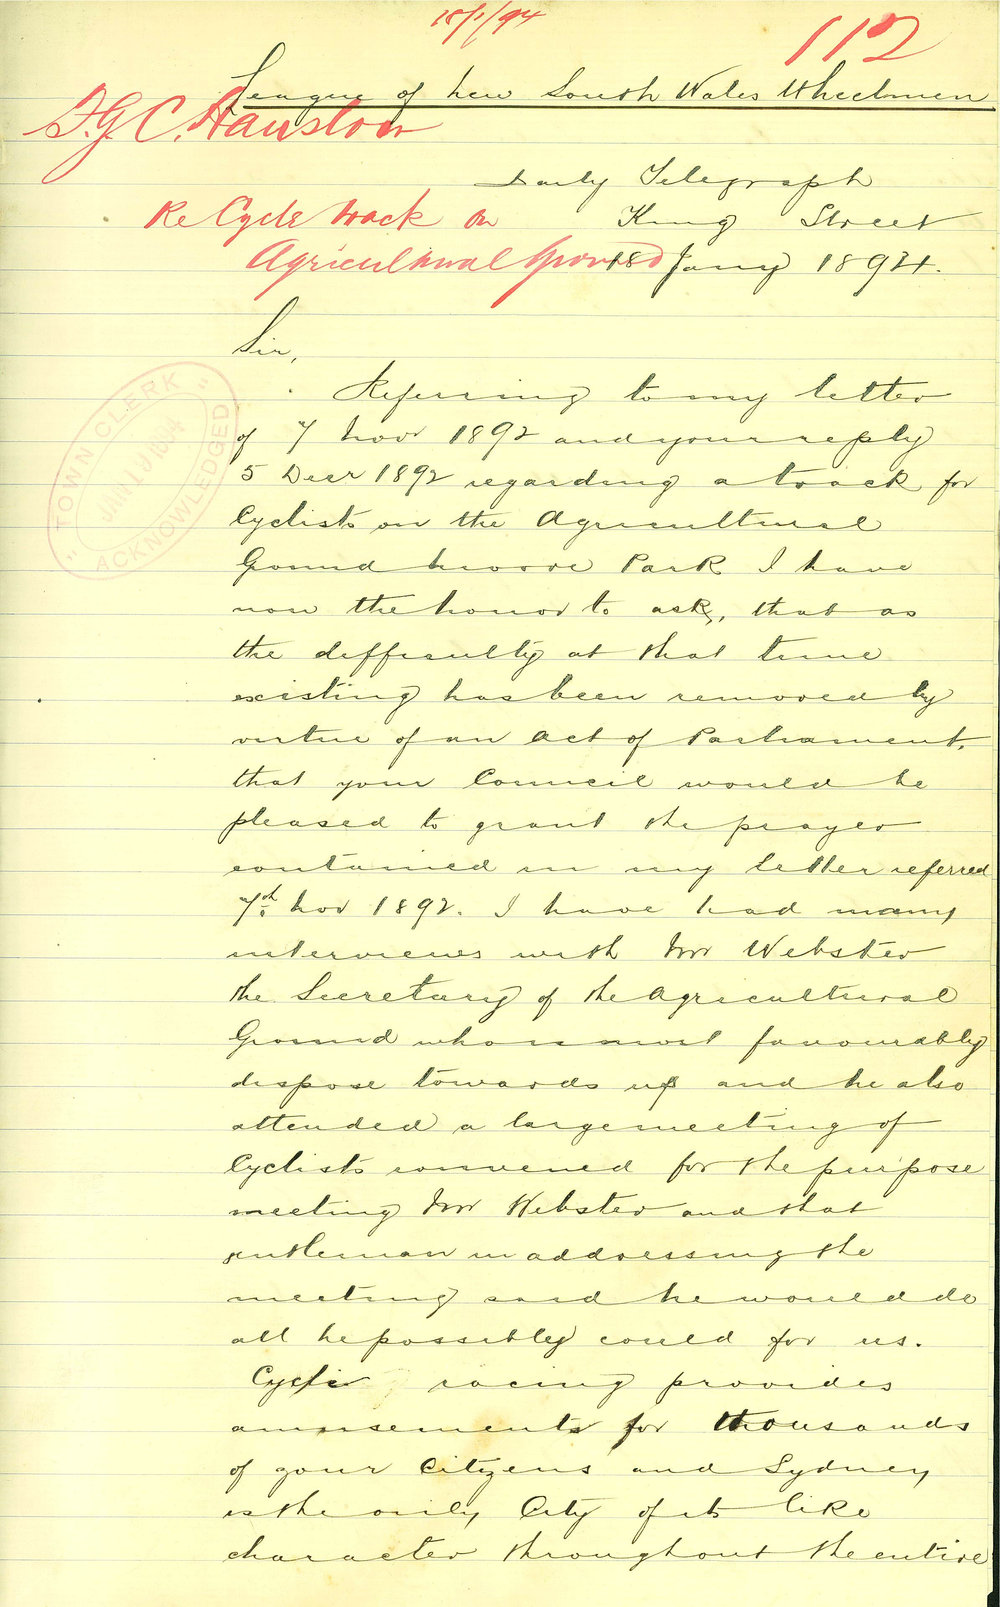 18/1/94
112
League of New South Wales Wheelmen
F.G.C. Hanslow
Daily Telegraph
Re Cycle track on
King Street
Agricultural Ground
18 Jany 1894.
Sir,
"TOWN CLERK"
JAN 19 1894
ACKNOWLEDGED
Referring to my letter
of 7 Novr 1892 and your reply
5 Decr 1892 regarding a track for
Cyclists on the Agricultural
Ground Moore Park I have
now the honor to ask, that as
the difficulty at that time
existing has been removed by
virtue of an Act of Parliament,
that your Council would be
pleased to grant the prayer
contained in my letter referred
7th Nov 1892. I have had many
interviews with Mr Webster
the Secretary of the Agricultural
Ground who is most favourably
dispose towards us and he also
attended a large meeting of
Cyclists convened for the purpose
meeting Mr Webster and that
gentleman in addressing the
meeting said he would do
all he possibly could for us.
Cycle racing provides
amusements for thousands
of your Citizens and Sydney
is the only City of its like
character throughout the entire